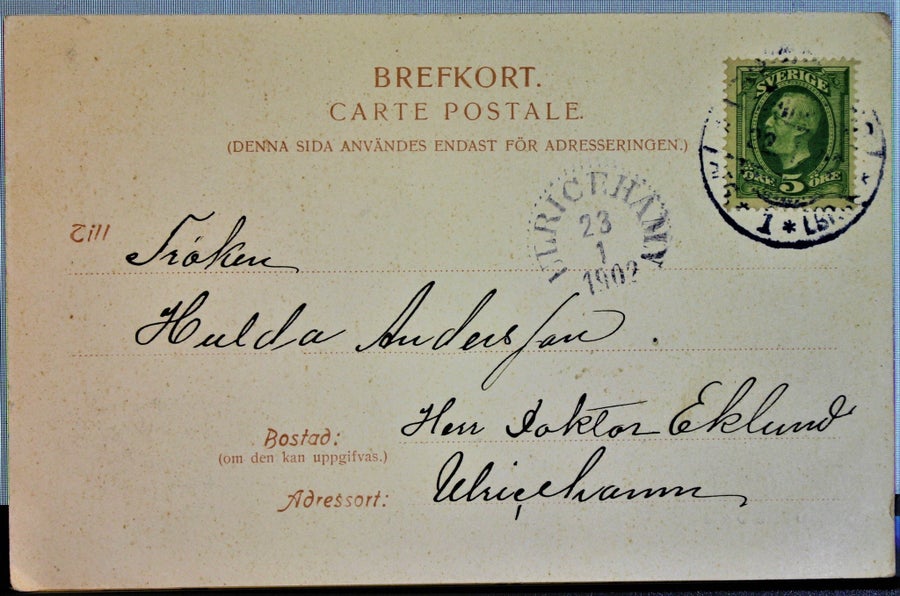 BREFKORT.
CARTE POSTALE.
(DENNA SIDA ANVÄNDES ENDAST FÖR ADRESSERINGEN.)
SVERIGE
ÖRE 5 ÖRE
1 * LBR
ULRICEHAMN
23
1
1902
Till
Fröken
Hulda Andersson.
Herr Doktor Eklund
Bostad:
(om den kan uppgifvas.)
Adressort:
Ulricehamn